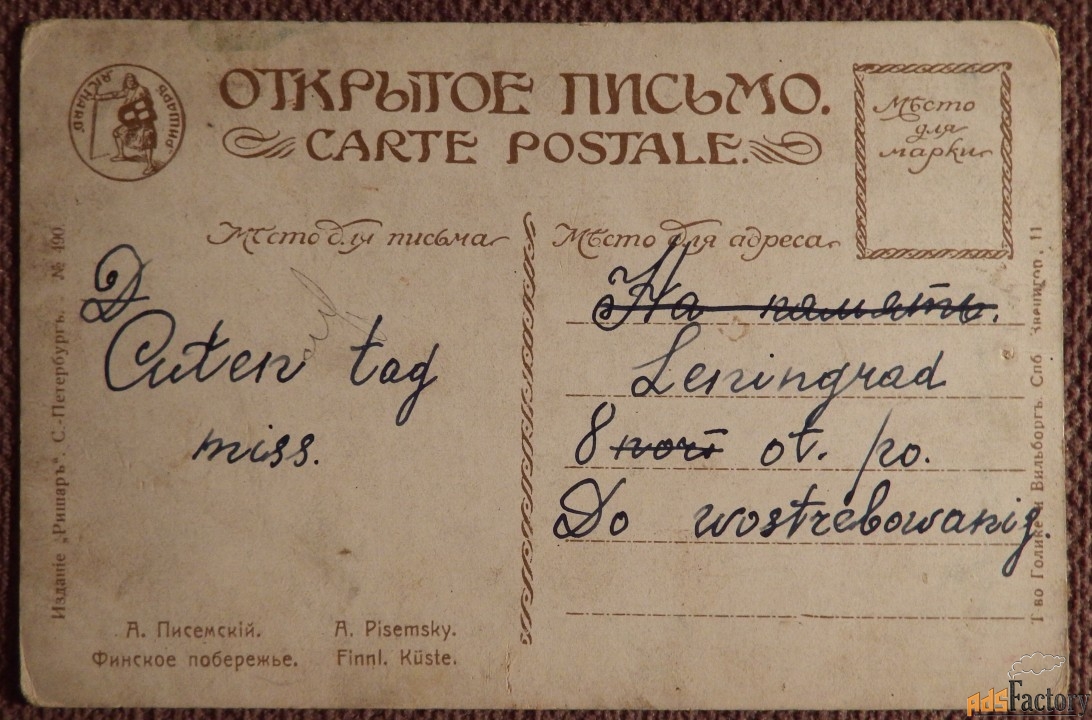 РИШАРЪ RICHARD
ОТКРЫТОЕ ПИСЬМО.
CARTE POSTALE.
Мѣсто
для
марки
Мѣсто для письма
Мѣсто для адреса
D
Guten tag
miss.
На память.
Leningrad
8 ot. po.
Do wostrebowanig.
Изданіе „Ришаръ". С.-Петербургъ. - № 490.
Т-во Голике и Вильборгъ. Спб. Звенигор., 11
А. Писемскій.
Финское побережье.
A. Pisemsky.
Finnl. Küste.
AdsFactory